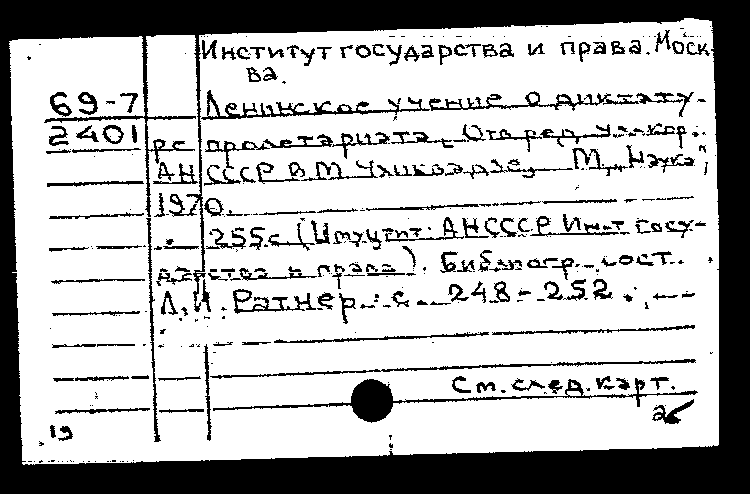 Институт государства и права. Моск-
ва.
69-7 Ленинское учение о диктату-
2401 ре пролетариата. Отв ред. чл.кор.
АН СССР В.М Чхиквадзе, М, „Наука",
1970.
255с (Имущтит: АНСССР Ин-т госу-
дарства и права). Библиогр. сост.
Л.И. Ратнер: с. 248-252.
См. след. карт.
19